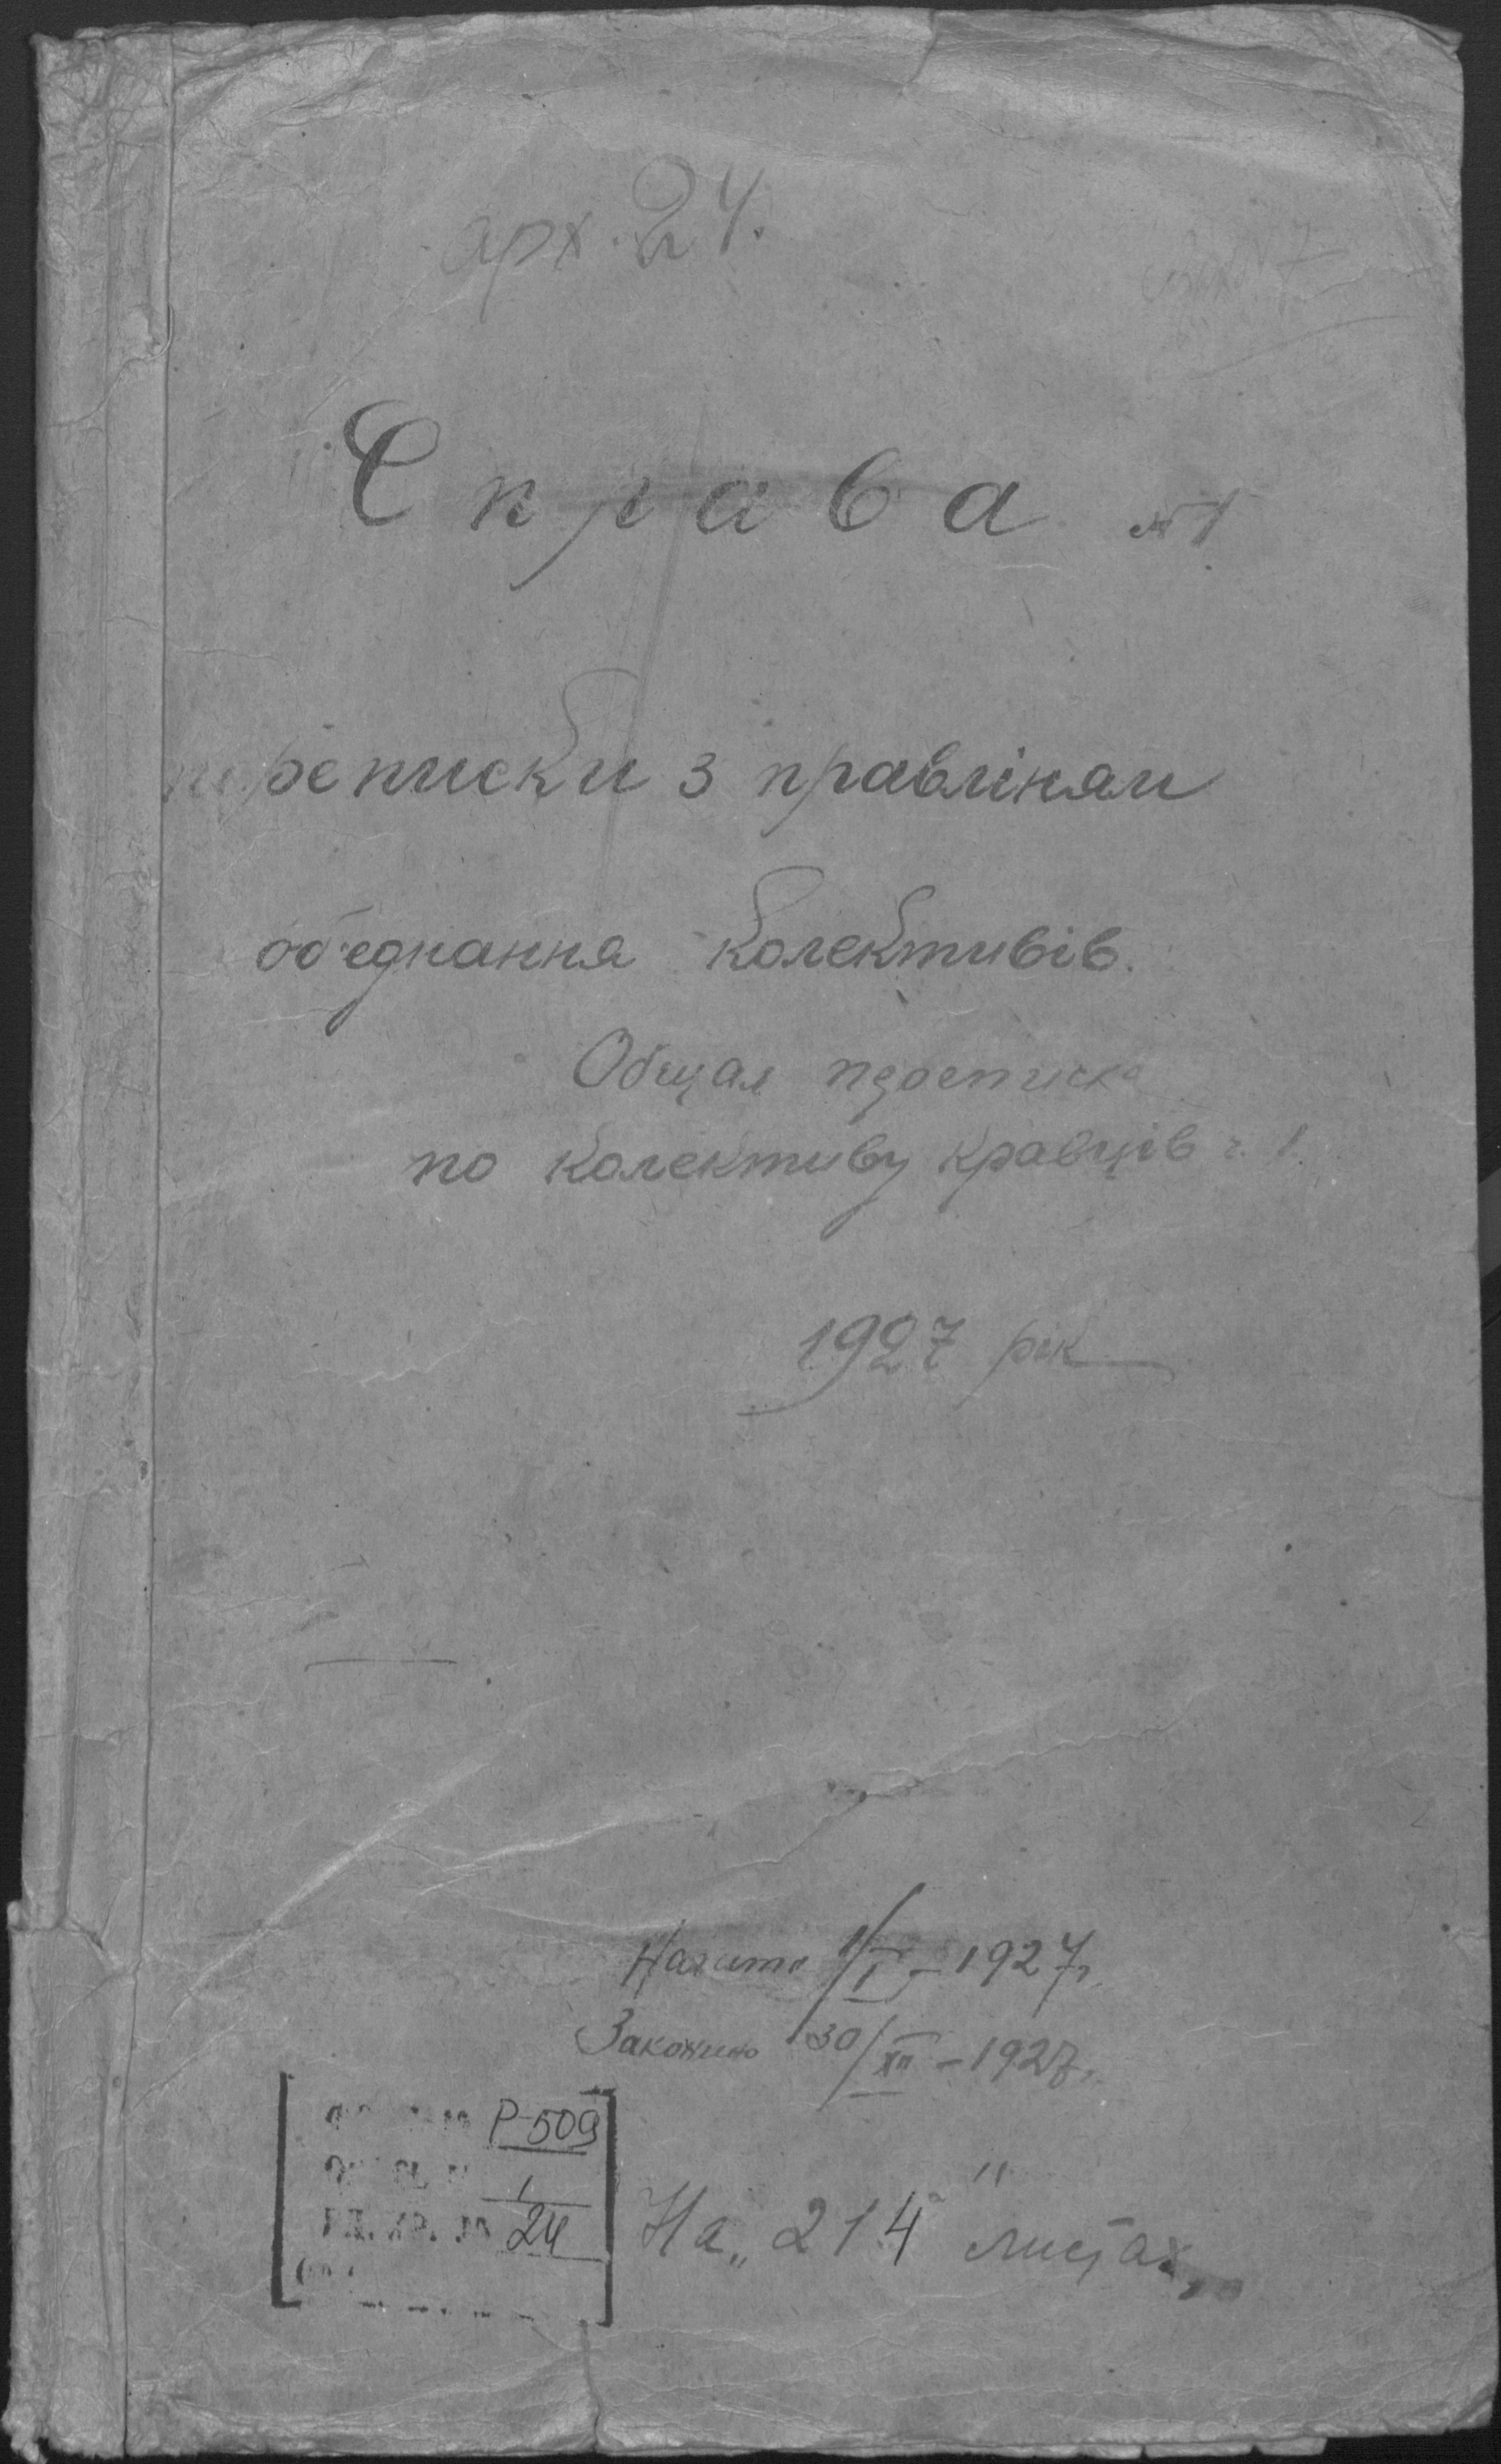 арх. 24.
Справа №1
переписки з правліням
об'єднання колективів.
Общая переписка
по колективу кравців ч. 1.
1927 рік
Начато 1/I – 1927 г.
Закончено 30/XII – 1927 г.
Р-509
1
ЕД. ХР. № 24
На „214" листах